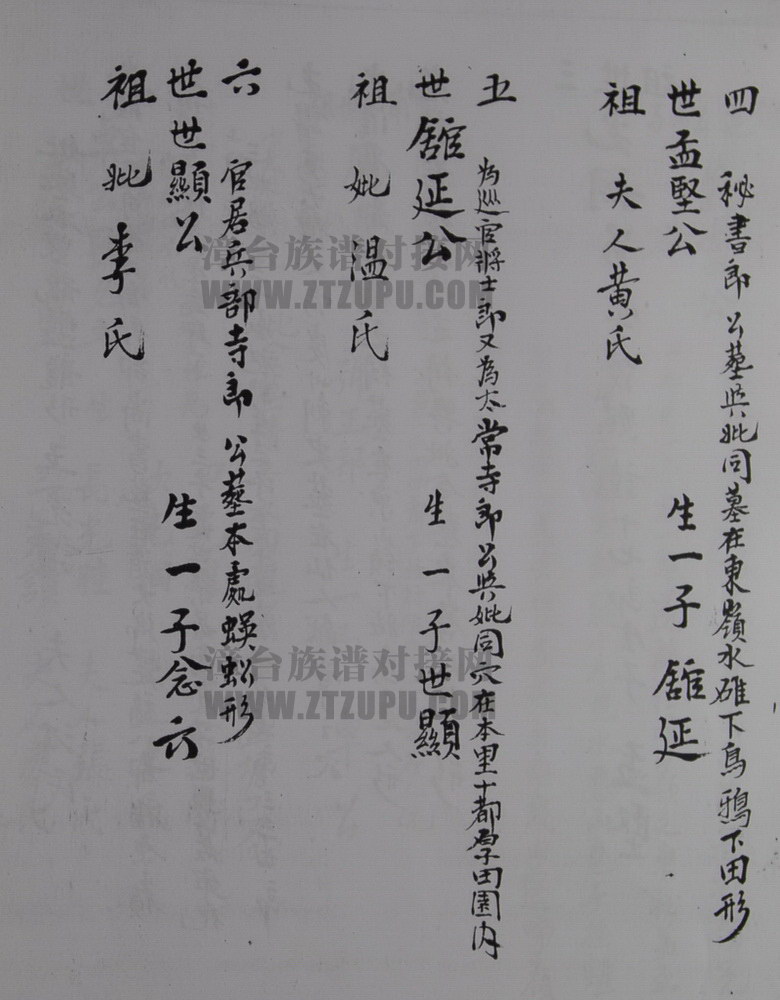 四 秘書郎 公墓與妣同墓在東嶺水碓下烏鴉下田形
世孟堅公 生一子舘延
祖 夫人黃氏
五 為巡官將士郎又為太常寺郎公與妣同穴在本里十都原田園內
世舘延公 生一子世顯
祖 妣溫氏
六 官居兵部寺郎 公墓本處蜈蚣形
世世顯公 生一子念六
祖 妣李氏
漳台族谱对接网
WWW.ZTZUPU.COM
漳台族谱对接网
WWW.ZTZUPU.COM